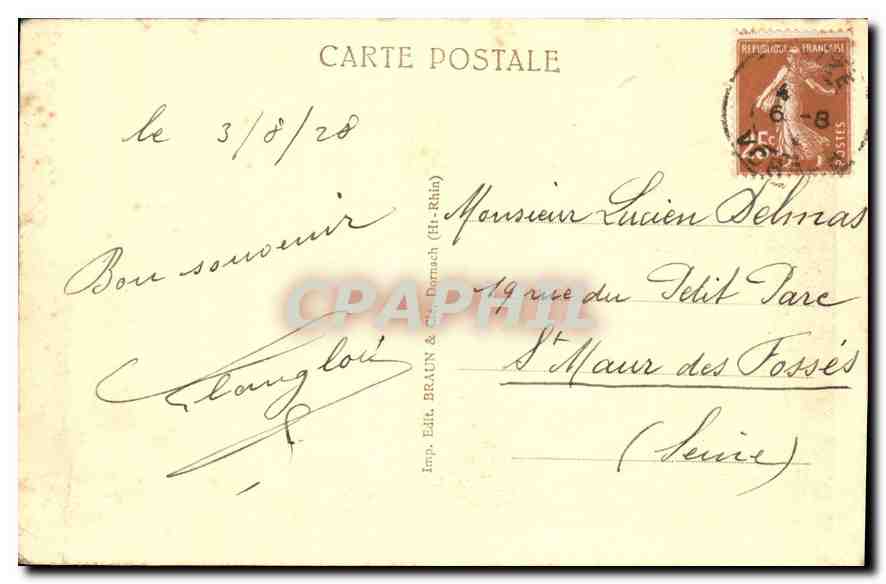 CARTE POSTALE
RÉPUBLIQUE FRANÇAISE
POSTES
6 -8
le 3/8/28
Bon souvenir
Monsieur Lucien Delmas
19 rue du Petit Parc
St Maur des Fossés
(Seine)
Imp. Edit. BRAUN & Cie, Dornach (Ht-Rhin)
CPAPHIL